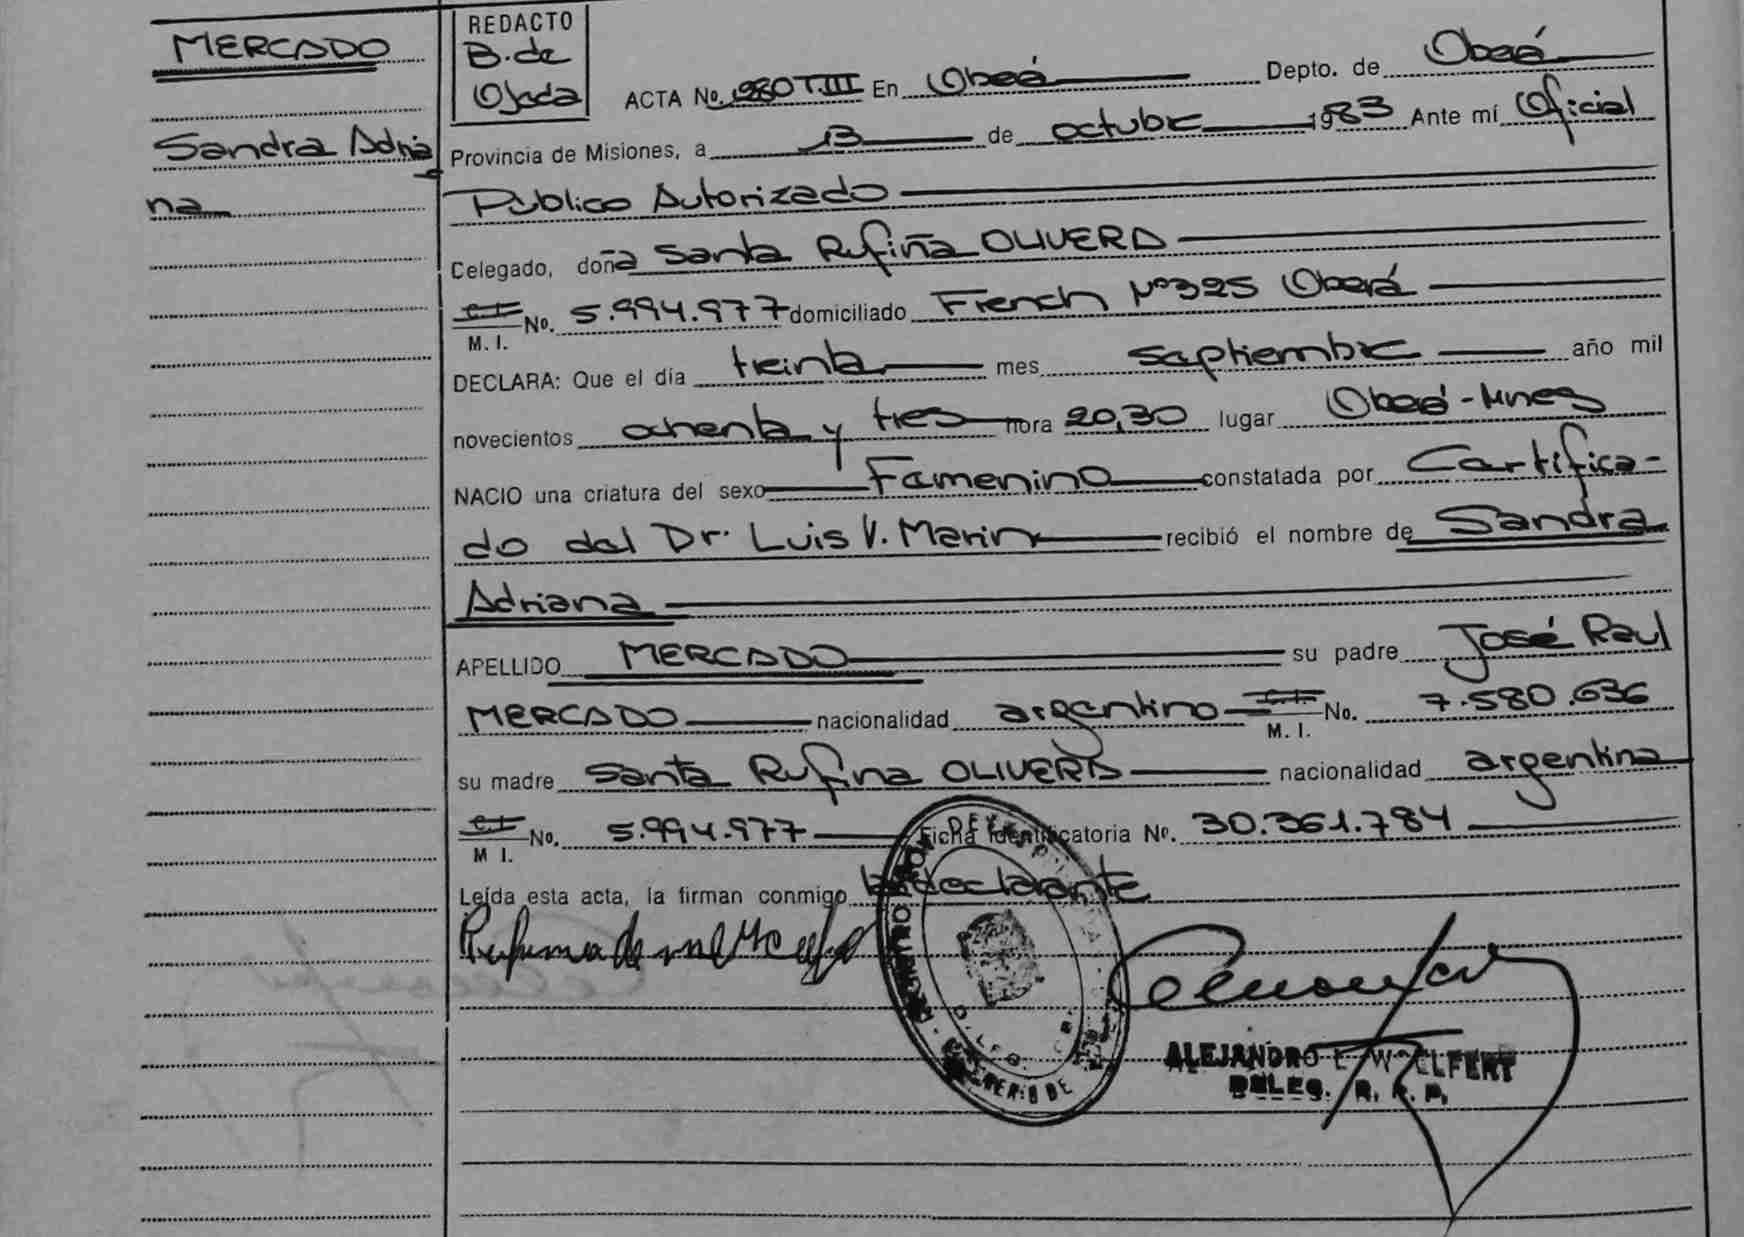 MERCADO
Sandra Adria
na
REDACTO
B. de
Ojeda
ACTA No. 980 T.III En Oberá Depto. de Oberá
Provincia de Misiones, a 13 de octubre 1983 Ante mí Oficial
Publico Autorizado
Celegado, doña Santa Rufiña OLIVERA
M. I. No. 5.994.977 domiciliado French Nº 325 Oberá
DECLARA: Que el día treinta mes septiembre año mil
novecientos ochenta y tres hora 20,30 lugar Oberá - Mnes
NACIO una criatura del sexo Femenino constatada por Certifica-
do del Dr. Luis V. Marin recibió el nombre de Sandra
Adriana
APELLIDO MERCADO su padre José Raul
MERCADO nacionalidad argentino M. I. No. 7.580.636
su madre Santa Rufina OLIVERA nacionalidad argentina
M I. No. 5.994.977 Ficha Identificatoria Nº. 30.361.784
Leída esta acta, la firman conmigo la declarante
ALEJANDRO E. WOELFERT
DELEG. R. P.